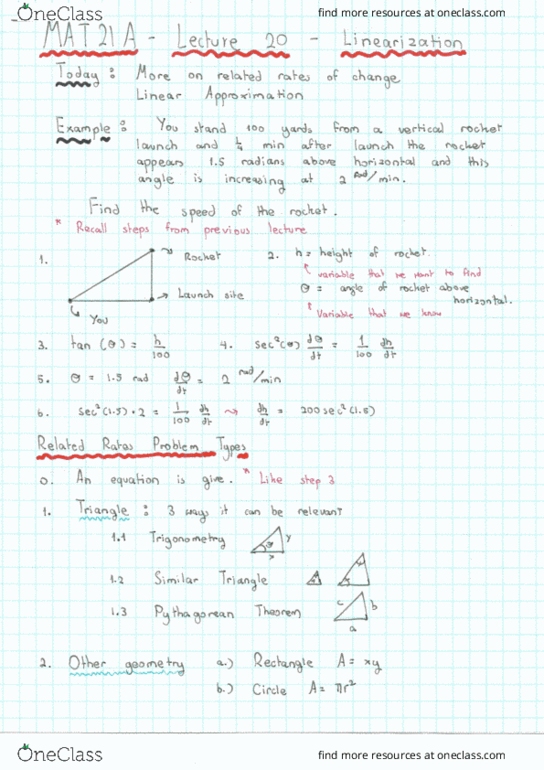 OneClass find more resources at oneclass.com
MAT 21A - Lecture 20 - Linearization
Today : More on related rates of change
Linear Approximation
Example : You stand 100 yards from a vertical rocket
launch and ¼ min after launch the rocket
appears 1.5 radians above horizontal and this
angle is increasing at 2 rad/min.
Find the speed of the rocket.
* Recall steps from previous lecture
1.
Rocket
Launch site
You
2. h = height of rocket.
variable that we want to find
θ = angle of rocket above
horizontal.
* Variable that we know
3. tan (θ) = h/100 4. sec²(θ) dθ/dt = 1/100 dh/dt
5. θ = 1.5 rad dθ/dt = 2 rad/min
6. sec²(1.5) · 2 = 1/100 dh/dt ⇝ dh/dt = 200 sec²(1.5)
Related Rates Problem Types
0. An equation is give. * Like step 3
1. Triangle : 3 ways it can be relevant
1.1 Trigonometry θ x y
1.2 Similar Triangle
1.3 Pythagorean Theorem c b a
2. Other geometry a.) Rectangle A = xy
b.) Circle A = πr²
OneClass find more resources at oneclass.com